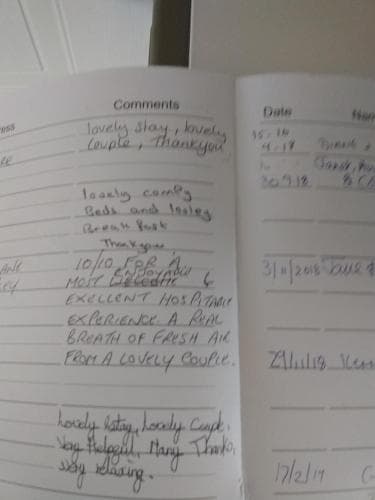 Comments
lovely stay, lovely
Couple, Thankyou
lovely comfy
Beds and lovley
Breakfast
Thankyou
10/10 FOR A
ENJOYABLE
MOST WELCOME &
EXELLENT HOSPITABLE
EXPERIENCE A REAL
BREATH OF FRESH AIR
FROM A LOVELY COUPLE.
Lovely Lovely Couple,
Very Helpful, Many Thanks,
very relaxing.
Date
30.9.18
3/11/2018
29/11/18
17/2/19